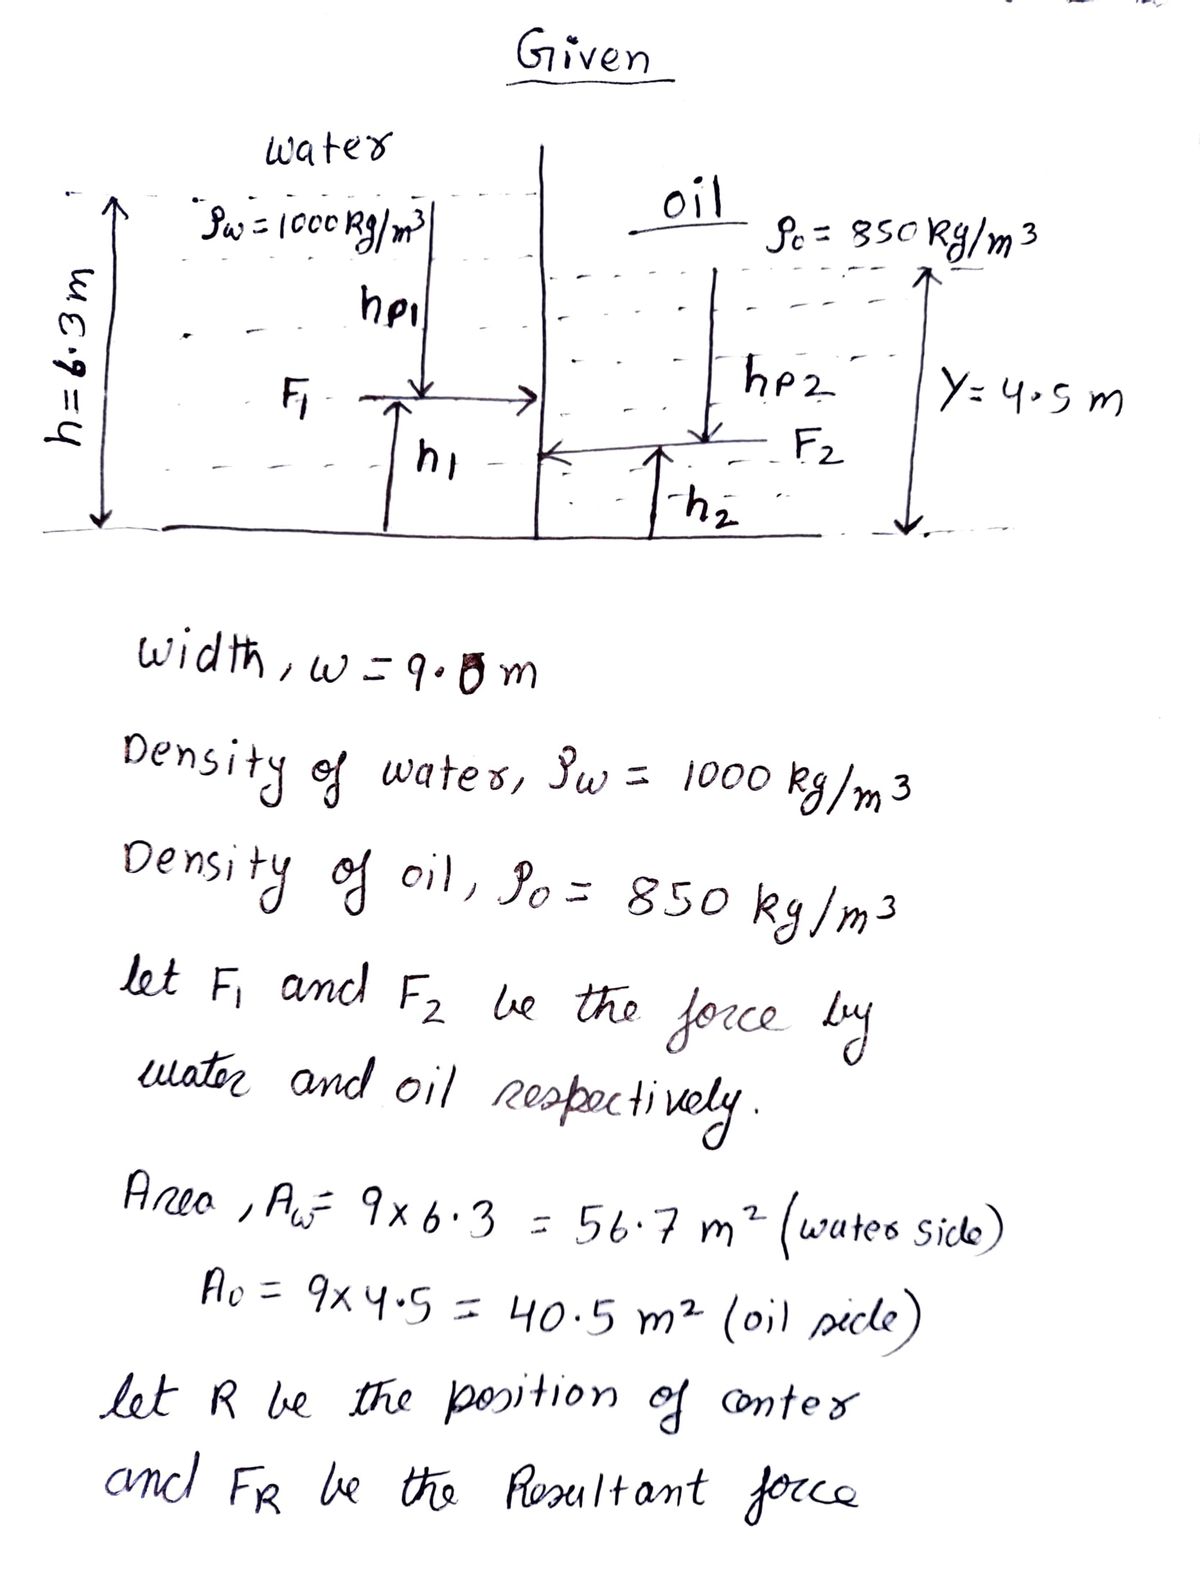 Given
water
ρw = 1000 kg/m³
oil
ρo = 850 kg/m³
h = 6.3 m
hp1
hp2
Y = 4.5 m
F1
F2
h1
h2
width, w = 9.0 m
Density of water, ρw = 1000 kg/m³
Density of oil, ρo = 850 kg/m³
let F1 and F2 be the force by
water and oil respectively.
Area, Aw = 9 x 6.3 = 56.7 m² (water side)
Ao = 9 x 4.5 = 40.5 m² (oil side)
let R be the position of center
and FR be the Resultant force